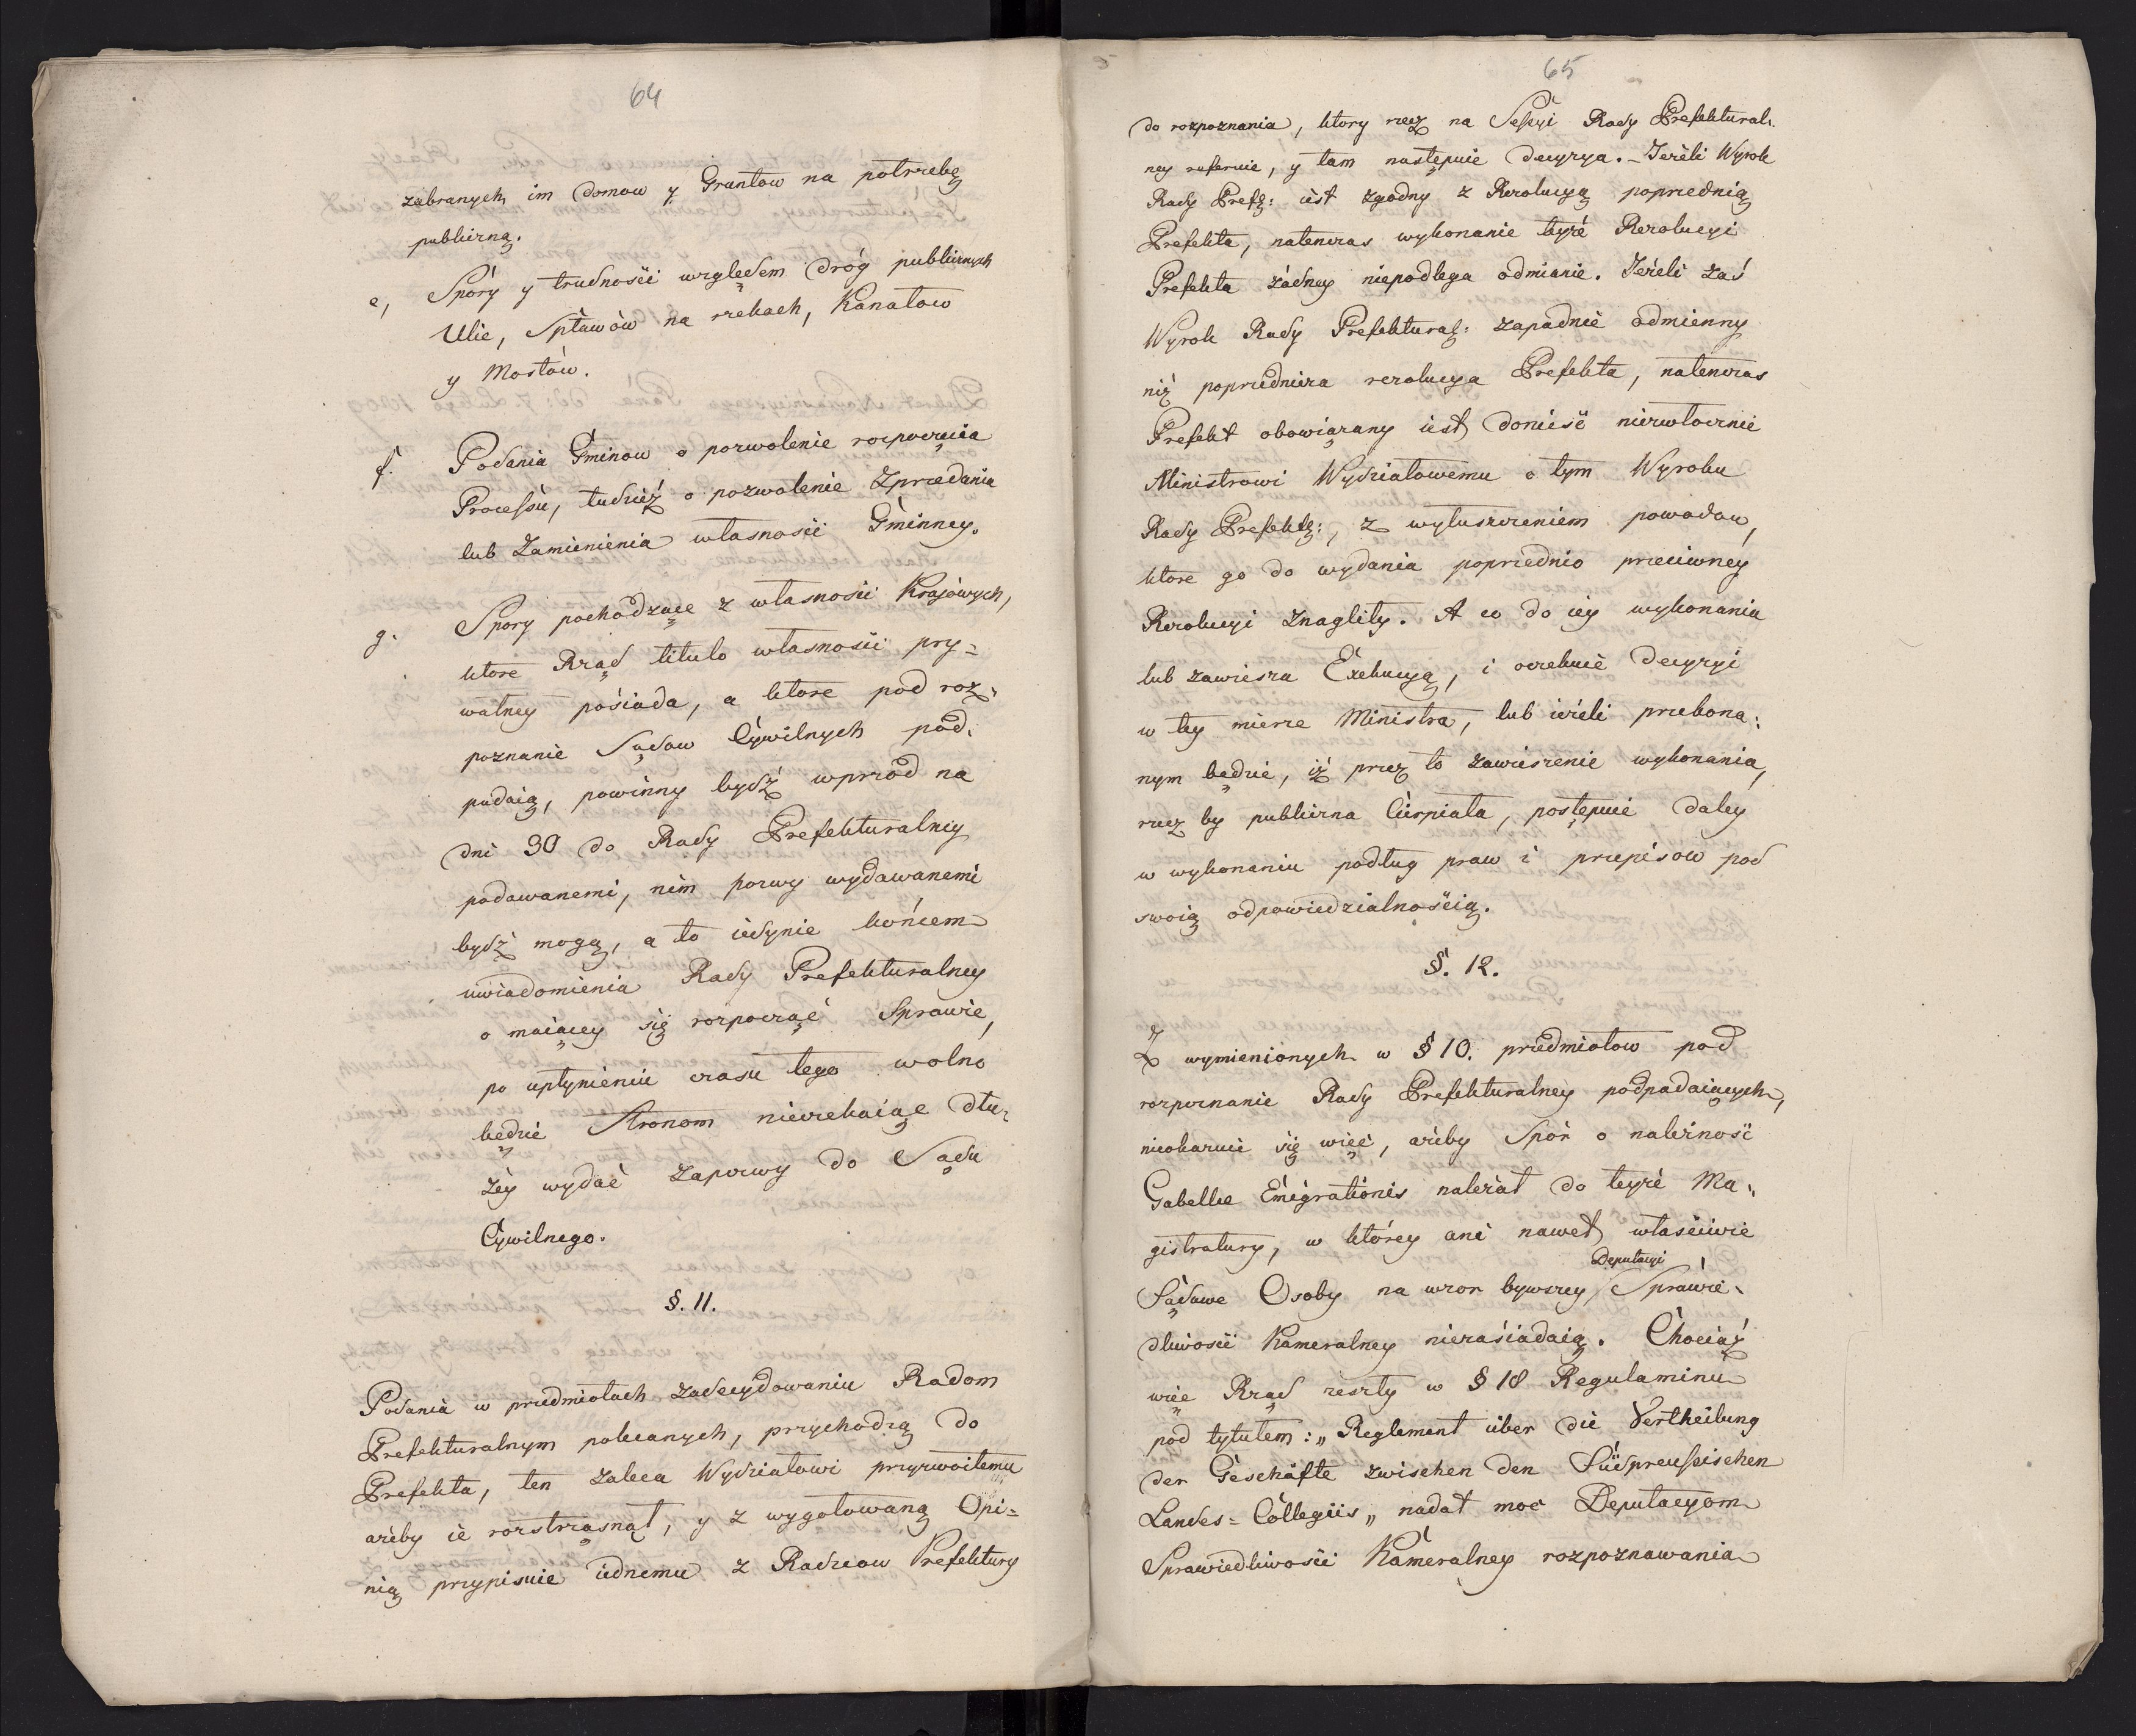 64
zabranych im domow y Gruntow na potrzebę
publiczną.
e, Spory y trudności względem dróg publicznych
Ulic, Spławów na rzekach, Kanałow
y Mostów.
f. Podania Gminow o pozwolenie rozpoczęcia
Processu, tudzież o pozwolenie Zprzedania
lub Zamienienia własności Gminney.
g. Spory pochodzące z własności Krajowych,
ktore Rząd titulo własności pry=
watney posiada, a ktore pod roz,
poznanie Sądow Cywilnych pod,
padaią, powinny bydź wprzod na
dni 30 do Rady Prefekturalney
podawanemi, nim pozwy wydawanemi
bydź mogą, a to iedynie końcem
uwiadomienia Rady Prefekturalney
o maiącey się rozpocząć Sprawie,
po upłynieniu czasu tego wolno
będzie Stronom nieczekaiąc dłu,
żey wydać zapozwy do Sądu
Cywilnego.
§. 11.
Podania w przedmiotach zadecydowaniu Radom
Prefekturalnym polecanych, przychodzą do
Prefekta, ten zaleca Wydziałowi przyzwoitemu
ażeby ie rozstrząsnął, y z wygotowaną Opi=
nią przypisuie iednemu z Radzcow Prefektury
65
do rozpoznania, ktory rzecz na Sessyi Rady Prefektural,
ney referuie, y tam następuie decyzya. - Jeżeli Wyrok
Rady Prefek: iest zgodny z Rezolucyą poprzednią
Prefekta, natenczas wykonanie teyże Rezolucyi
Prefekta żadney niepodlega odmianie. Jeżeli zaś
Wyrok Rady Prefektural: zapadnie odmienny
niż poprzednicza rezolucya Prefekta, natenczas
Prefekt obowiązany iest donieść niezwłocznie
Ministrowi Wydziałowemu o tym Wyroku
Rady Prefekt:, z wyłuszczeniem powodow,
ktore go do wydania poprzednio przeciwney
Rezolucyi znagliły. A co do iey wykonania
lub zawiesza Exekucyą, i oczekuie decyzyi
w tey mierze Ministra, lub ieżeli przekona,
nym będzie, iż przez to zawieszenie wykonania,
rzecz by publiczna Cierpiała, postępuie daley
w wykonaniu podług praw i przepisow pod
swoią odpowiedzialnością.
§. 12.
Z wymienionych w § 10. przedmiotow pod
rozpoznanie Rady Prefekturalney podpadaiących,
nieokazuie się więc, ażeby Spór o należność
Gabellae Emigrationis należał do teyże Ma,
gistratury, w którey ani nawet właściwie
Sądowe Osoby na wzor bywszey Deputacyi Sprawie,
dliwości Kameralney niezasiadaią. Chociaż
więc Rząd zeszły w § 18 Regulaminu
pod tytułem: „Reglement über die Vertheilung
der Geschäfte zwischen den Südpreussischen
Landes=Collegiis„ nadał moc Deputacyom
Sprawiedliwości Kameralney rozpoznawania